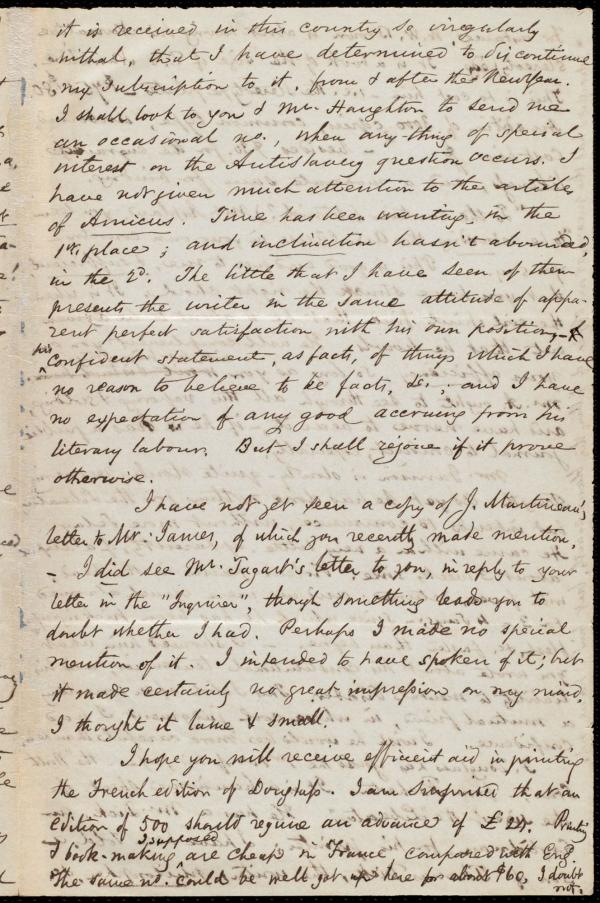 it is received in this country so irregularly
withal, that I have determined to discontinue
my subscription to it, from & after the New Year.
I shall look to you & Mr. Haughton to send me
an occasional no., when any thing of special
interest on the Antislavery question occurs. I
have not given much attention to the articles
of Amicus. Time has been wanting, in the
1st. place; and inclination hasn't abounded,
in the 2d. The little that I have seen of them
presents the writer in the same attitude of appa-
rent perfect satisfaction with his own position, - &
his confident statement, as facts, of things which I have
no reason to believe to be facts, &c.; and I have
no expectation of any good accruing from his
literary labour. But I shall rejoice if it prove
otherwise.
I have not yet seen a copy of J. Martineau's
letter to Mr. James, of which you recently made mention.
- I did see Mr. Tagart's letter to you, in reply to your
letter in the "Inquirer", though something leads you to
doubt whether I had. Perhaps I made no special
mention of it. I intended to have spoken of it; but
it made certainly no great impression on my mind.
I thought it lame & small.
I hope you will receive efficient aid in printing
the French edition of Douglass. I am surprised that an
edition of 500 should require an advance of £ Printing
& book-making, I supposed, are cheap in France compared with Engd.
The same no. could be well got up here for about $60, I doubt
not.